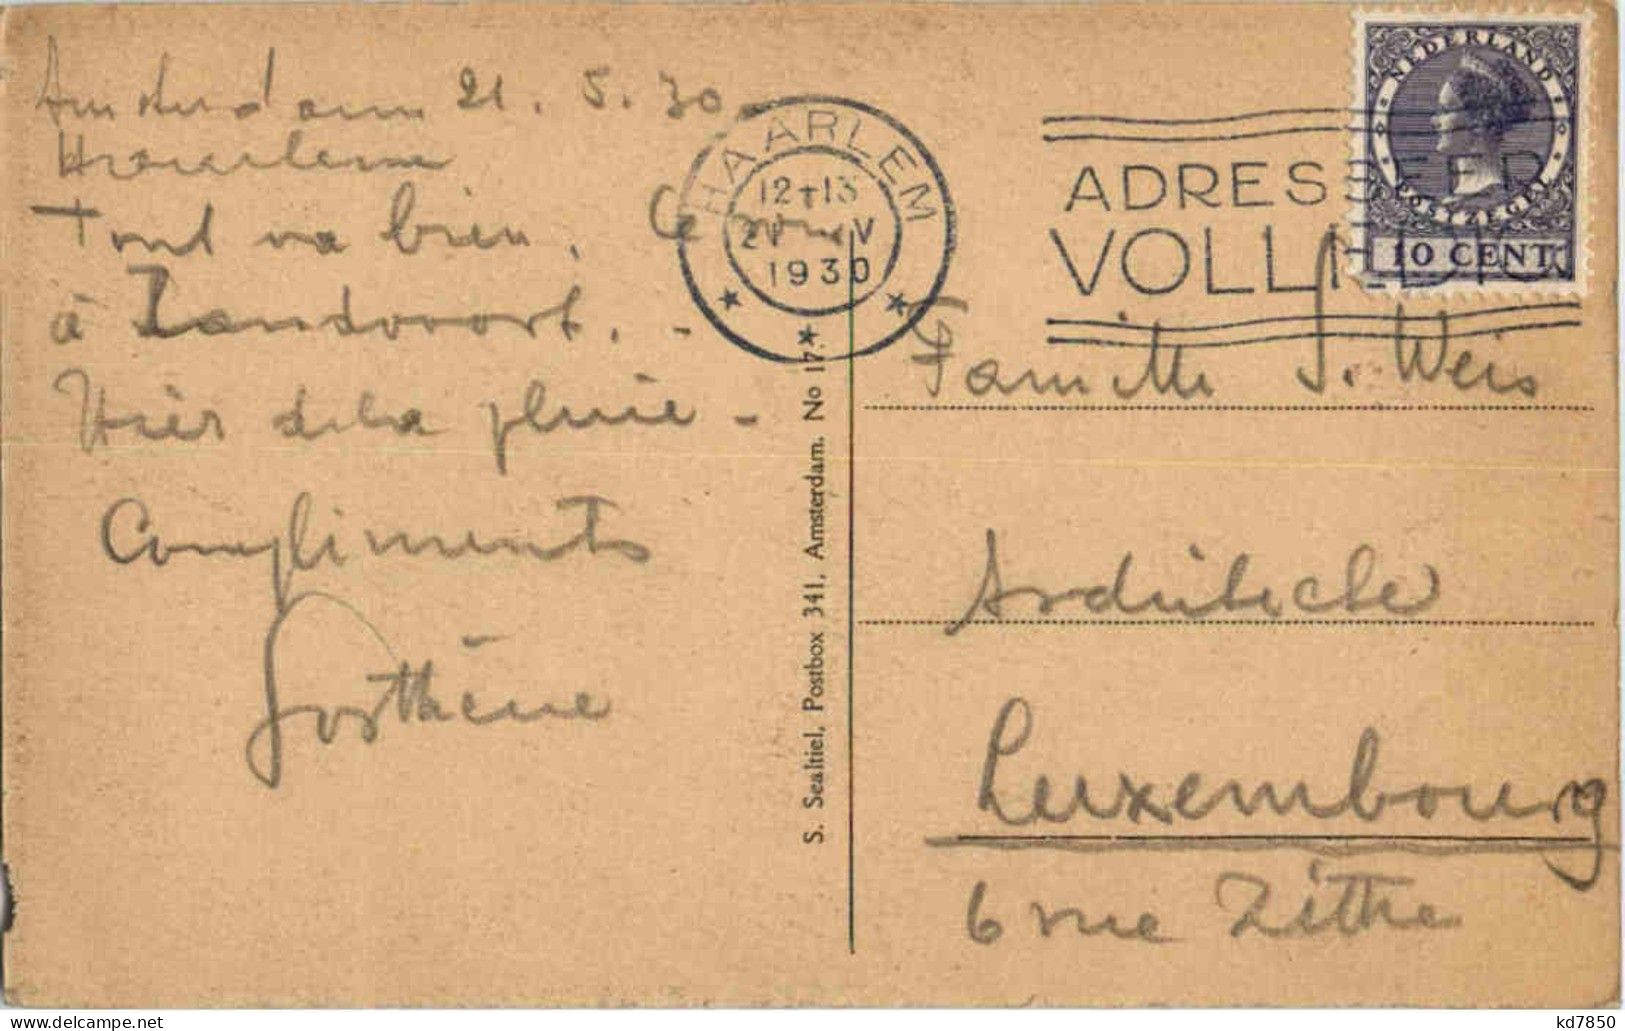 Amsterdam 21.5.30
Haarlem
Tout va bien. Ce
à Zandvoort. -
Hier de la pluie -
Compliments
Sosthène
HAARLEM
12-13
21 V
1930
ADRES
VOLL
NEDERLAND
POSTZEGEL
10 CENT
S. Sealtiel, Postbox 341, Amsterdam. No 17.
Famille J. Weis
Architecte
Luxembourg
6 rue Zithe
kd7850